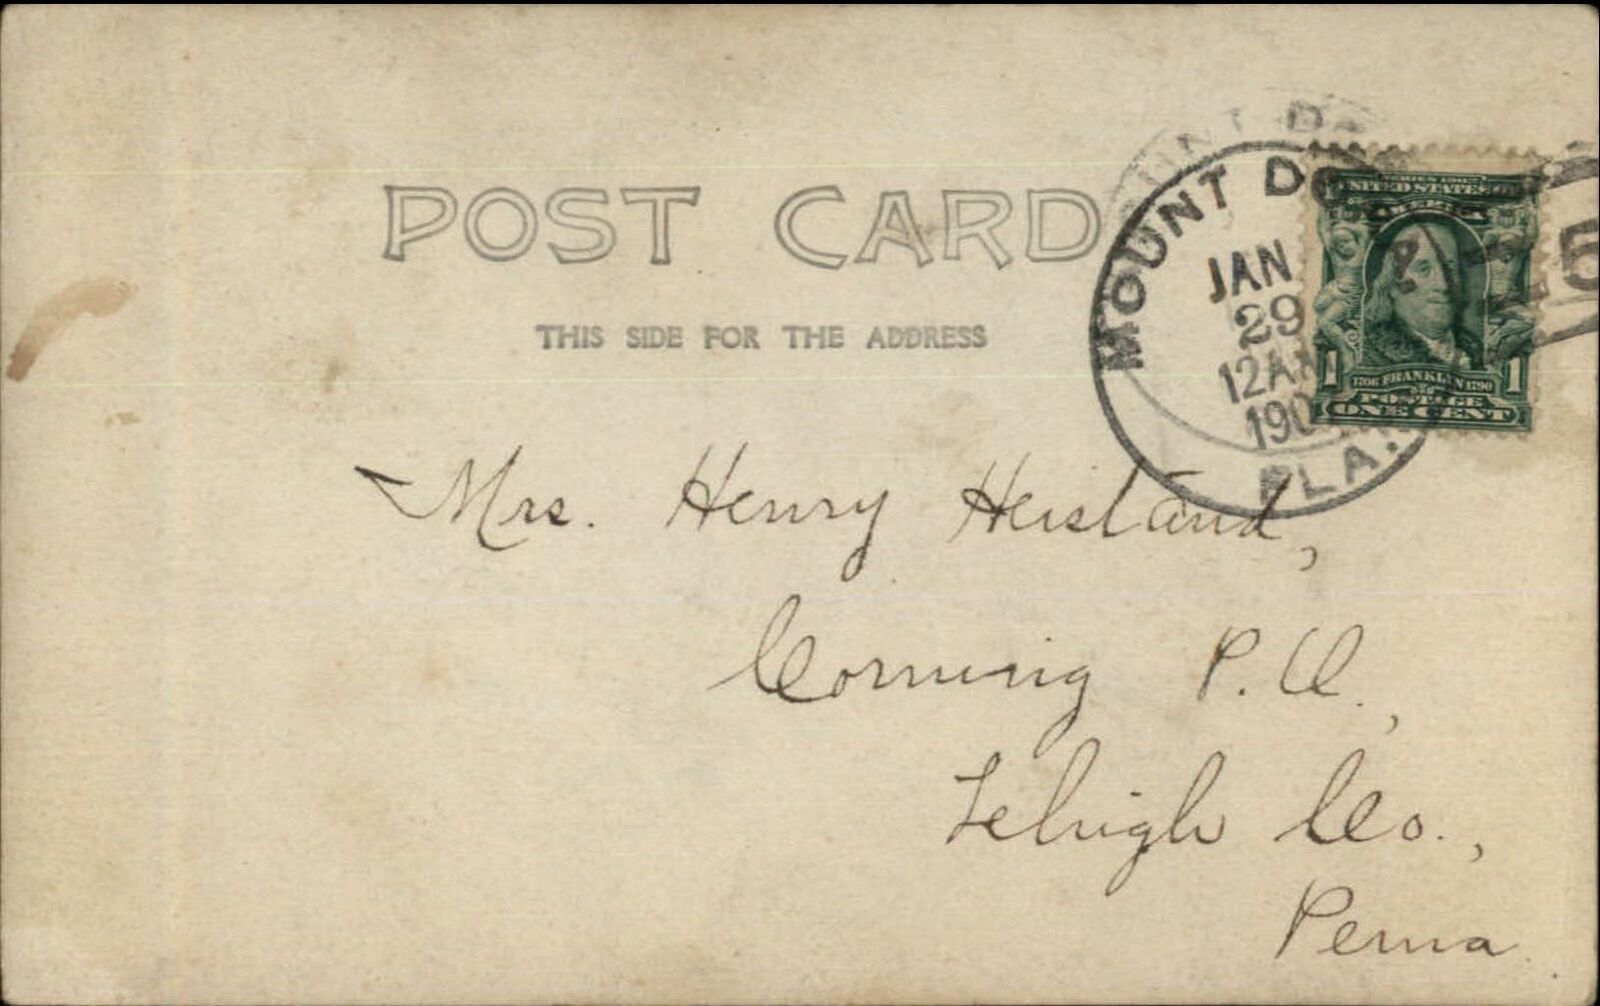 POST CARD
THIS SIDE FOR THE ADDRESS
MOUNT DORA
JAN
29
12 AM
190
FLA.
SERIES 1902
UNITED STATES OF
AMERICA
1 1706 FRANKLIN 1790 1
POSTAGE
ONE CENT
5
Mrs. Henry Heistand,
Corning P.O.,
Lehigh Co.,
Penna.